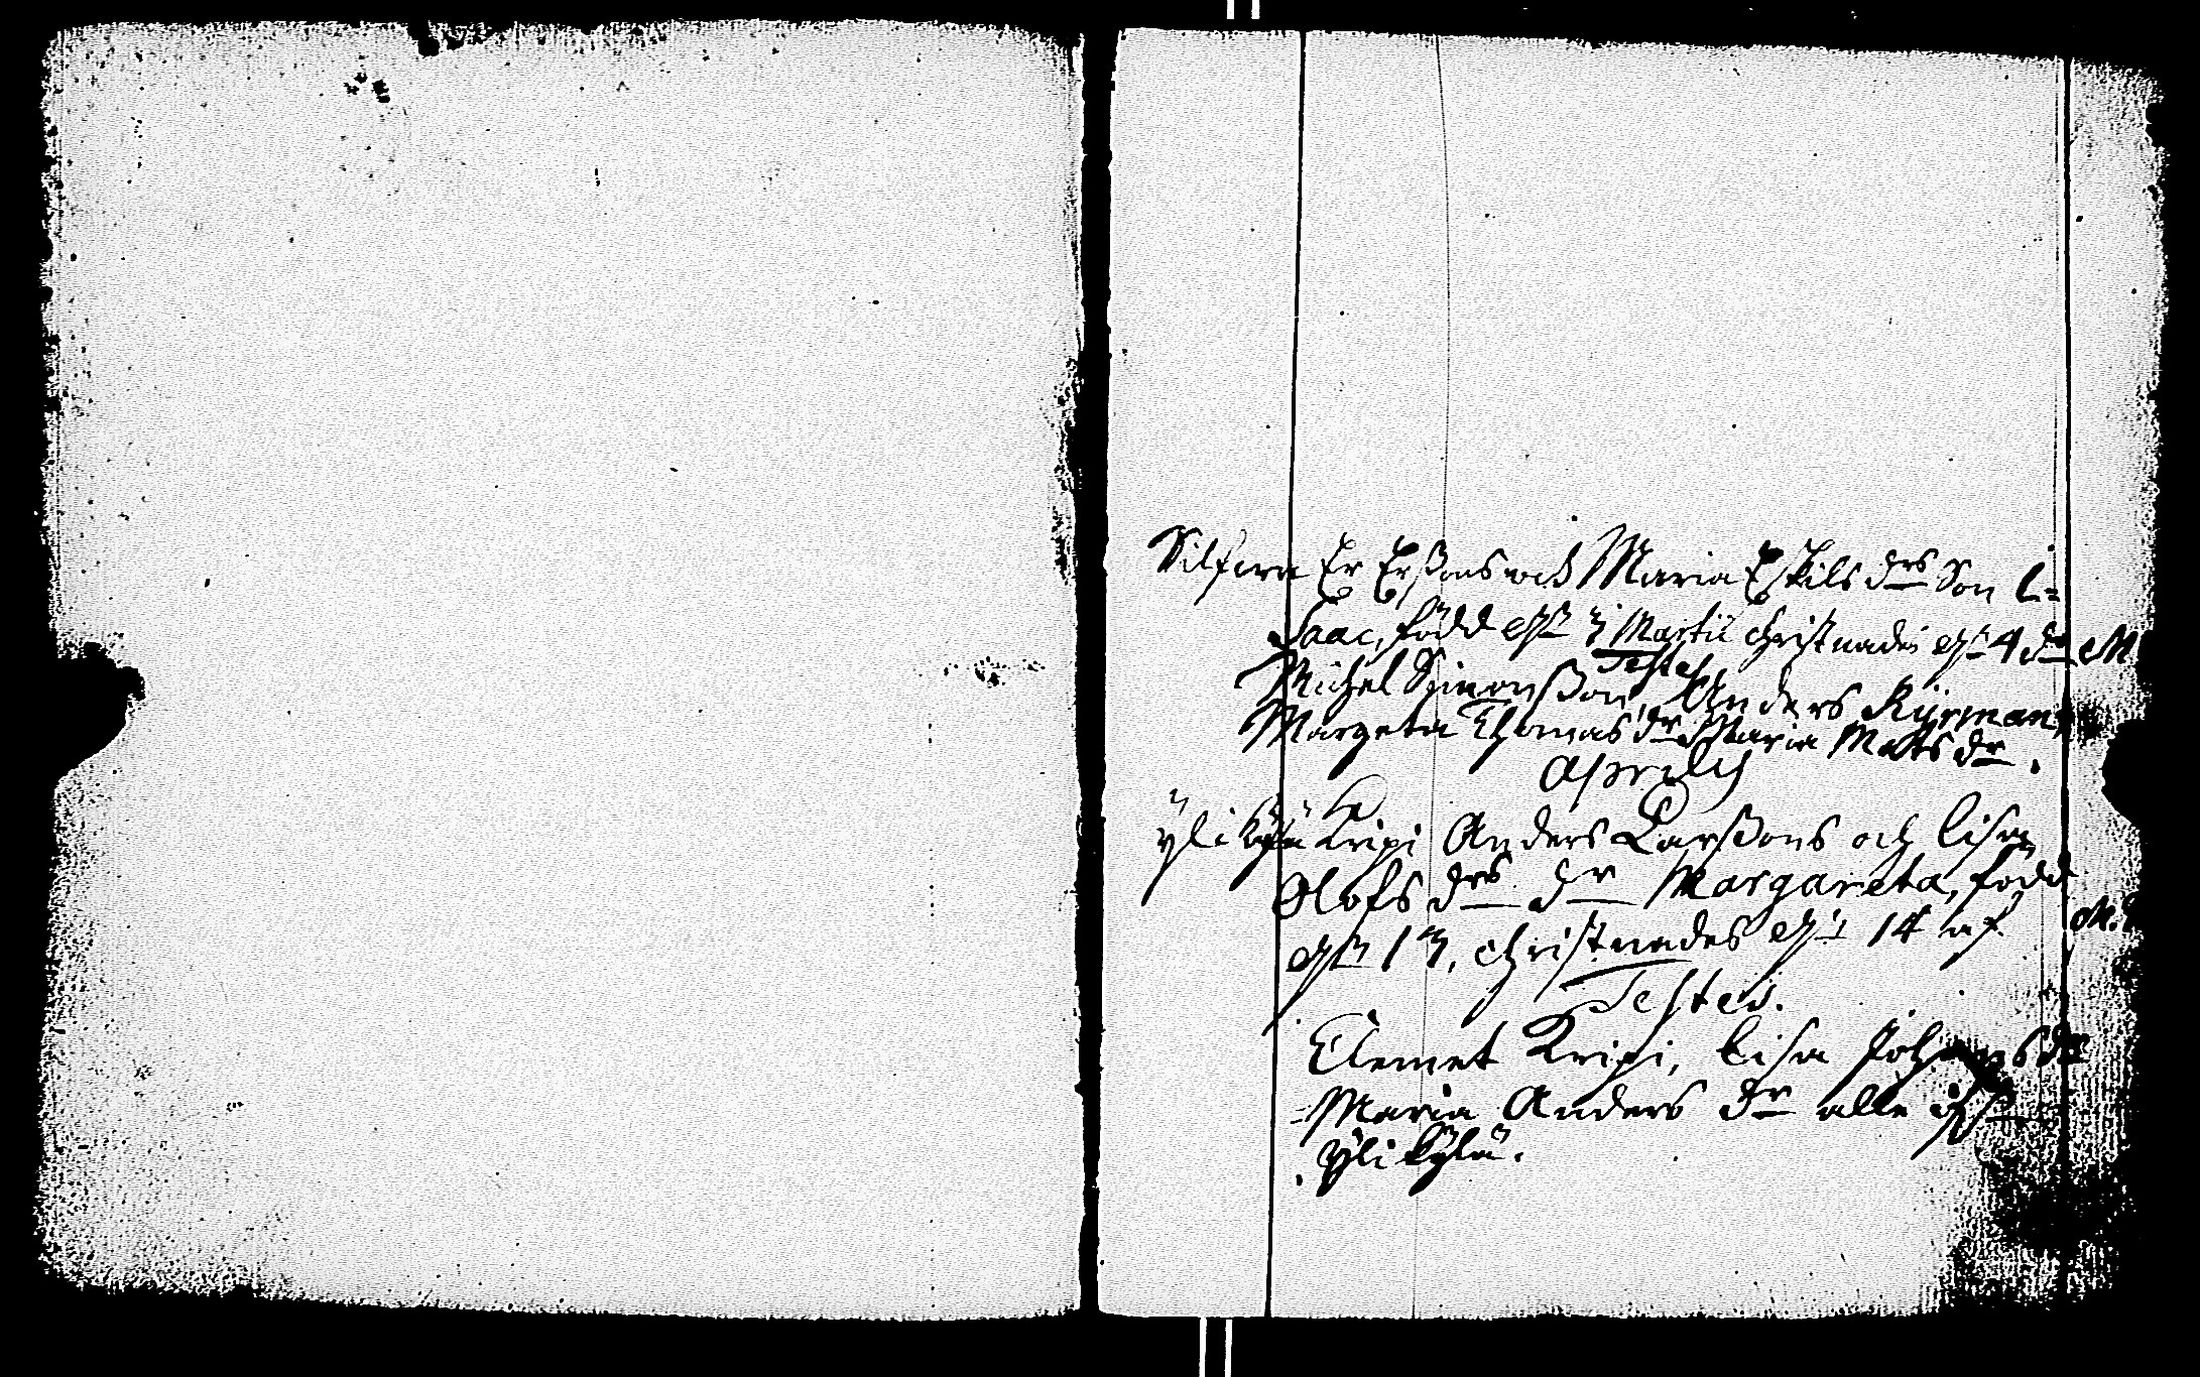 Er Erßons och Maria Eskils drs Son I=
Saac, född d 3 Martii Christnades d 4 dn M
Testes
Michel Simonßon, Anders Kyrman,
Margeta Thomas dr Maria Mats dr.
Aprilis
Ylikylä Kripi Anders Larßons och Lisa
Olofs drs dr Margareta, född
d 13, Christnades d 14 af M.
Testes.
Clemet Kripi, Lisa dr
Maria Anders dr alle
Ylikylä.